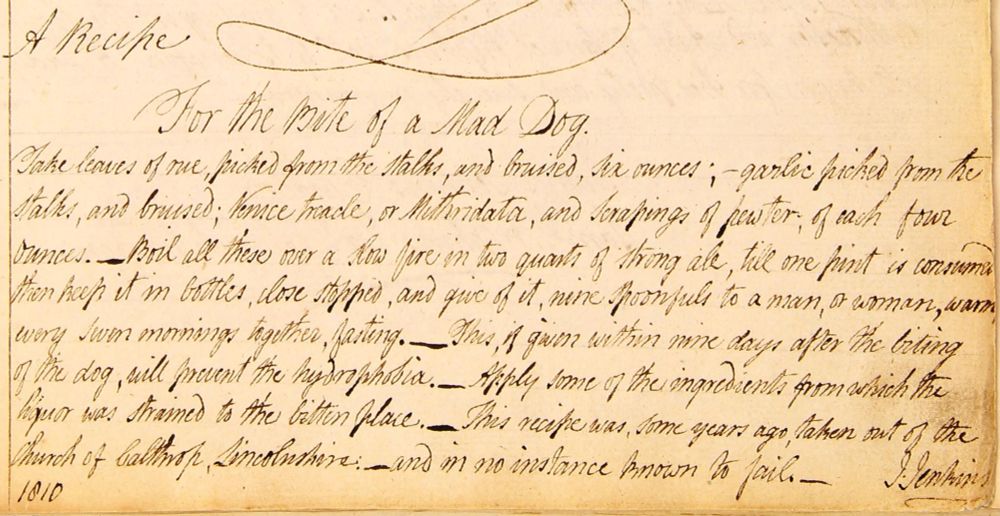 A Recipe
For the Bite of a Mad Dog.
Take leaves of rue, picked from the stalks, and bruised, six ounces; – garlic picked from the
stalks, and bruised; Venice treacle, or Mithridata, and scrapings of pewter, of each four
ounces. — Boil all these over a slow fire in two quarts of strong ale, till one pint is consumed
then keep it in bottles, close stopped, and give of it, nine spoonfuls to a man, or woman, warm
every seven mornings together, fasting. — This, if given within nine days after the biting
of the dog, will prevent the hydrophobia. — Apply some of the ingredients from which the
liquor was strained to the bitten place. — This recipe was, some years ago, taken out of the
Church of Calthrop, Lincolnshire: — and in no instance known to fail. — J. Jenkins
1810